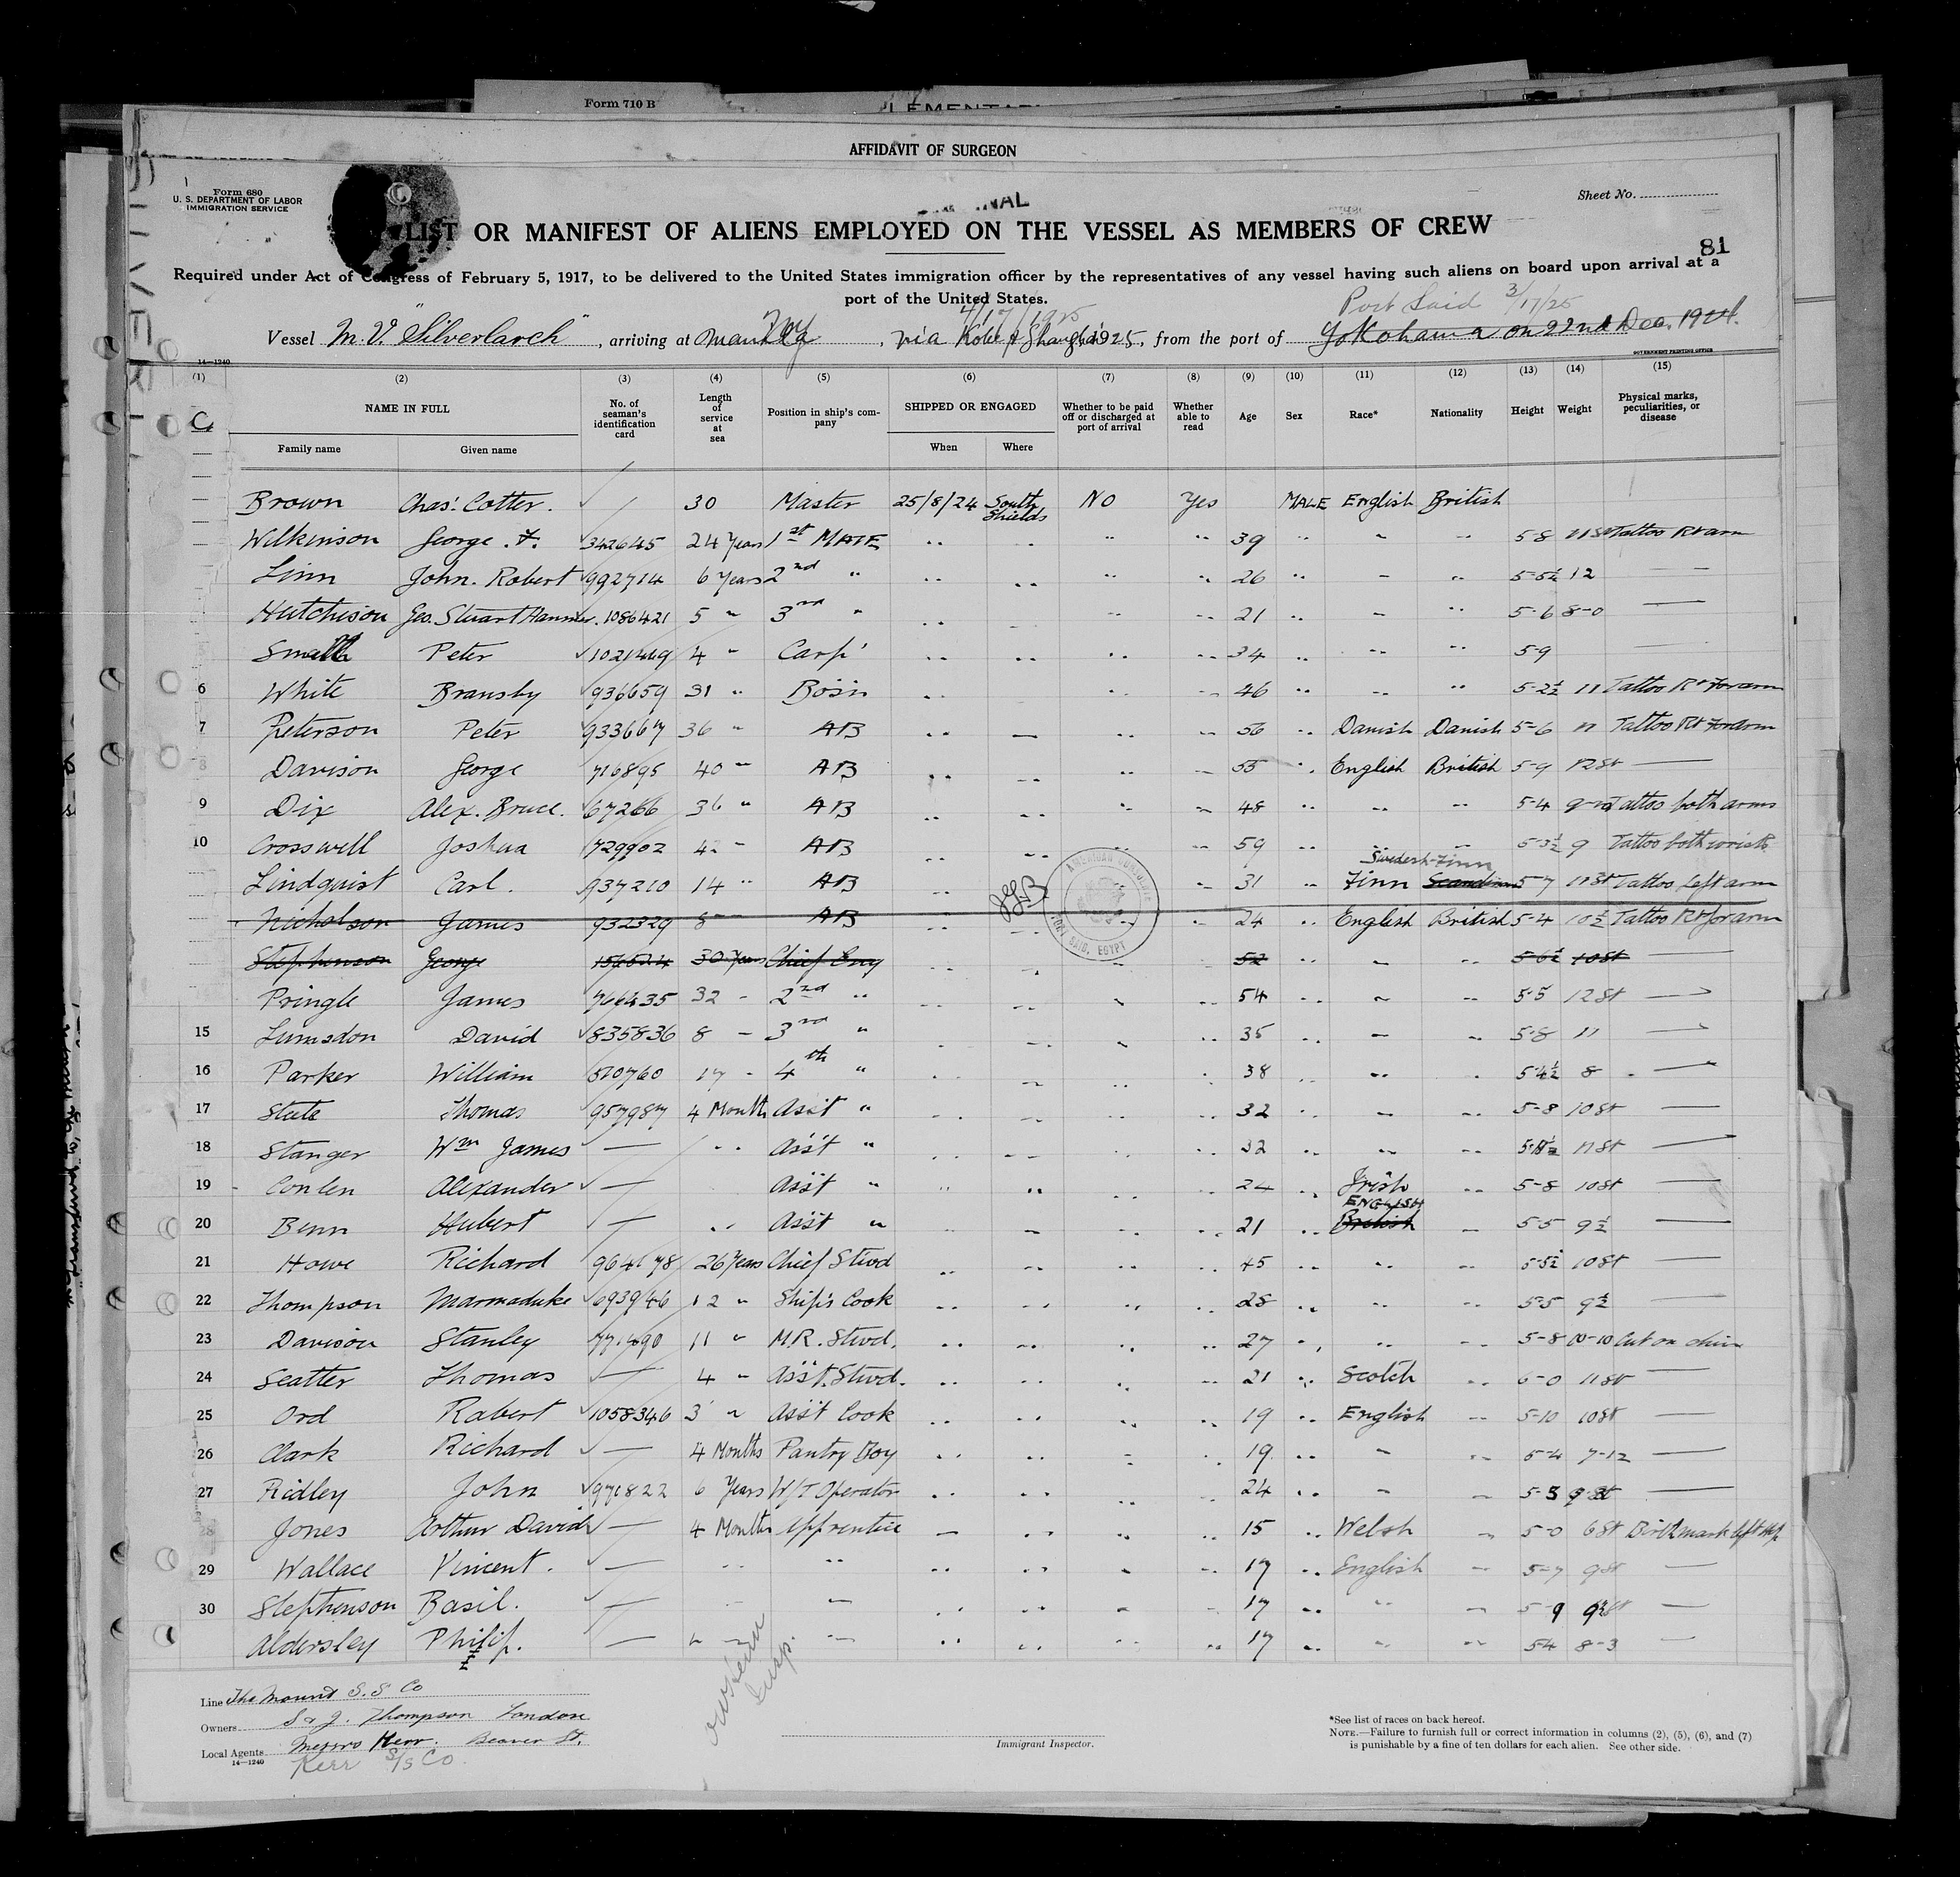 Form 710 B
AFFIDAVIT OF SURGEON
Form 680
U. S. DEPARTMENT OF LABOR
IMMIGRATION SERVICE
Sheet No.
LIST OR MANIFEST OF ALIENS EMPLOYED ON THE VESSEL AS MEMBERS OF CREW
81
Required under Act of Congress of February 5, 1917, to be delivered to the United States immigration officer by the representatives of any vessel having such aliens on board upon arrival at a
port of the United States.
4/17/1925 Port Said 3/17/25
Vessel M.V. "Silverlarch", arriving at Manila NY, via Kobe & Shanghai 1925, from the port of Yokohama on 22nd Dec. 1924.
14—1240 GOVERNMENT PRINTING OFFICE
(1) (2) (3) (4) (5) (6) (7) (8) (9) (10) (11) (12) (13) (14) (15)
NAME IN FULL No. of seaman's identification card Length of service at sea Position in ship's company SHIPPED OR ENGAGED Whether to be paid off or discharged at port of arrival Whether able to read Age Sex Race* Nationality Height Weight Physical marks, peculiarities, or disease
Family name Given name When Where
Brown Chas. Cotter. 30 Master 25/8/24 South Shields No Yes MALE English British
Wilkinson George. F. 342645 24 Years 1st MATE " " " " 39 " " " 5-8 Tattoo Rt arm
Linn John. Robert 992714 6 Years 2nd " " " " 26 " - " 5-5½ 12 —
Hutchison Geo. Stuart 1086421 5 " 3rd " " " " 21 " - " 5-6 8-0 —
Small Peter 1021449 4 " Carp' " " " " 34 " " " 5-9 —
6 White Bransby 936659 31 " Bosn " " " 46 " " " 5-2½ 11 Tattoo Rt Forarm
7 Peterson Peter 933667 36 " AB " — " " 56 " Danish Danish 5-6 11 Tattoo Rt Forarm
8 Davison George 716895 40 " AB " " " 55 " English British 5-9 12st —
9 Dix Alex. Bruce. 67266 36 " AB " " " " 48 " " " 5-4 Tattoo both arms
10 Crosswell Joshua 729902 42 " AB " " 59 " " 5-3½ 9 Tattoo both wrists
Swedish-Finn
Lindquist Carl. 937210 14 " AB " " " 31 " Finn 5-7 11st Tattoo Left arm
AMERICAN CONSULATE PORT SAID, EGYPT
Nicholson James 932329 8 " AB " " " 24 " English British 5-4 10½ Tattoo Rt forarm
Stephenson George 30 Years Chief Eng " " " 52 " " " 5-6½ 10st —
Pringle James 766435 32 " 2nd " " " " " 54 " " " 5-5 12st —
15 Lumsdon David 835836 8 " 3rd " " " " " 35 " " " 5-8 11 —
16 Parker William 510760 17 " 4th " " " " " 38 " " " 5-4½ 8 —
17 State Thomas 957987 4 Month Ass't " " " " " 32 " " " 5-8 10st —
18 Stanger Wm James — " Ass't " " " " " 32 " " " 11st —
19 Conlen Alexander — Ass't " " " " " 24 " Irish " 5-8 10st —
ENGLISH
20 Benn Hubert — " Ass't " " " " " 21 " British " 5-5 9½ —
21 Howe Richard 964178 26 Years Chief Stwd " " " " 45 " " " 5-5½ 10st —
22 Thompson Marmaduke 693946 12 " Ship's Cook " " " " 28 " " " 5-5 9½ —
23 Davison Stanley 771490 11 " M.R. Stwd. " " " " 27 " " " 5-8 10-10 Cut on chin
24 Seatter Thomas — 4 " Ass't. Stwd. " " " " 21 " Scotch " 6-0 11st —
25 Ord Robert 1058346 3 " Ass't Cook " " " " 19 " English " 5-10 10st —
26 Clark Richard — 4 Months Pantry Boy " " " " 19 " " " 5-4 7-12 —
27 Ridley John 971822 6 Years W/T Operator " " " " 24 " " " 5-5 —
28 Jones Arthur David — 4 Months Apprentice " " " " 15 " Welsh " 5-0 6st Birthmark left hip
29 Wallace Vincent. — " " " " " " 17 " English " 5-7 9st —
30 Stephenson Basil. — " " " " " " 17 " " " 5-9 —
Aldersley Philip. — " " " " " " 17 " " " 5-4 8-3 —
Line The Mount S.S Co
Owners S & J. Thompson London
Local Agents Messrs Kerr. Beaver St.
14—1240 Kerr S/S Co.
Immigrant Inspector.
*See list of races on back hereof.
NOTE.—Failure to furnish full or correct information in columns (2), (5), (6), and (7)
is punishable by a fine of ten dollars for each alien. See other side.